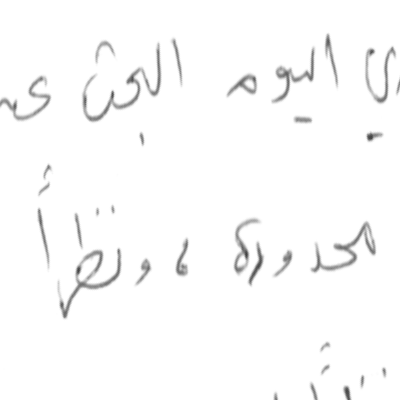 ري اليوم البحث عن
محدودة ، ونظراً